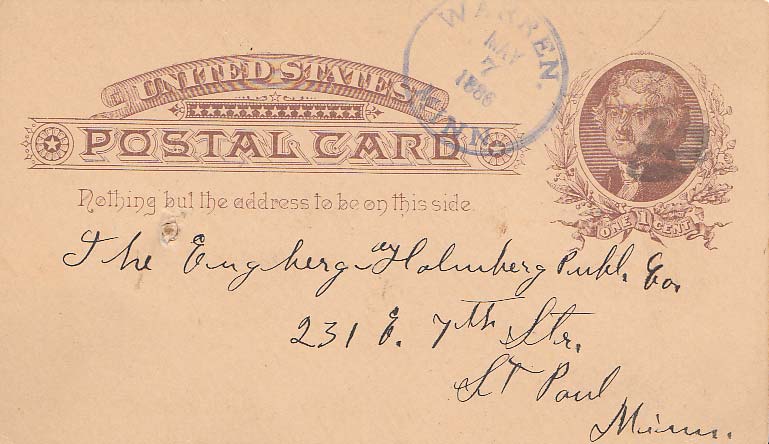 WARREN.
MAY
7
1886
MINN.
UNITED STATES
POSTAL CARD
Nothing but the address to be on this side.
ONE 1 CENT
The Engberg & Holmberg Publ. Co.
231 E. 7th Str.
St Paul
Minn.